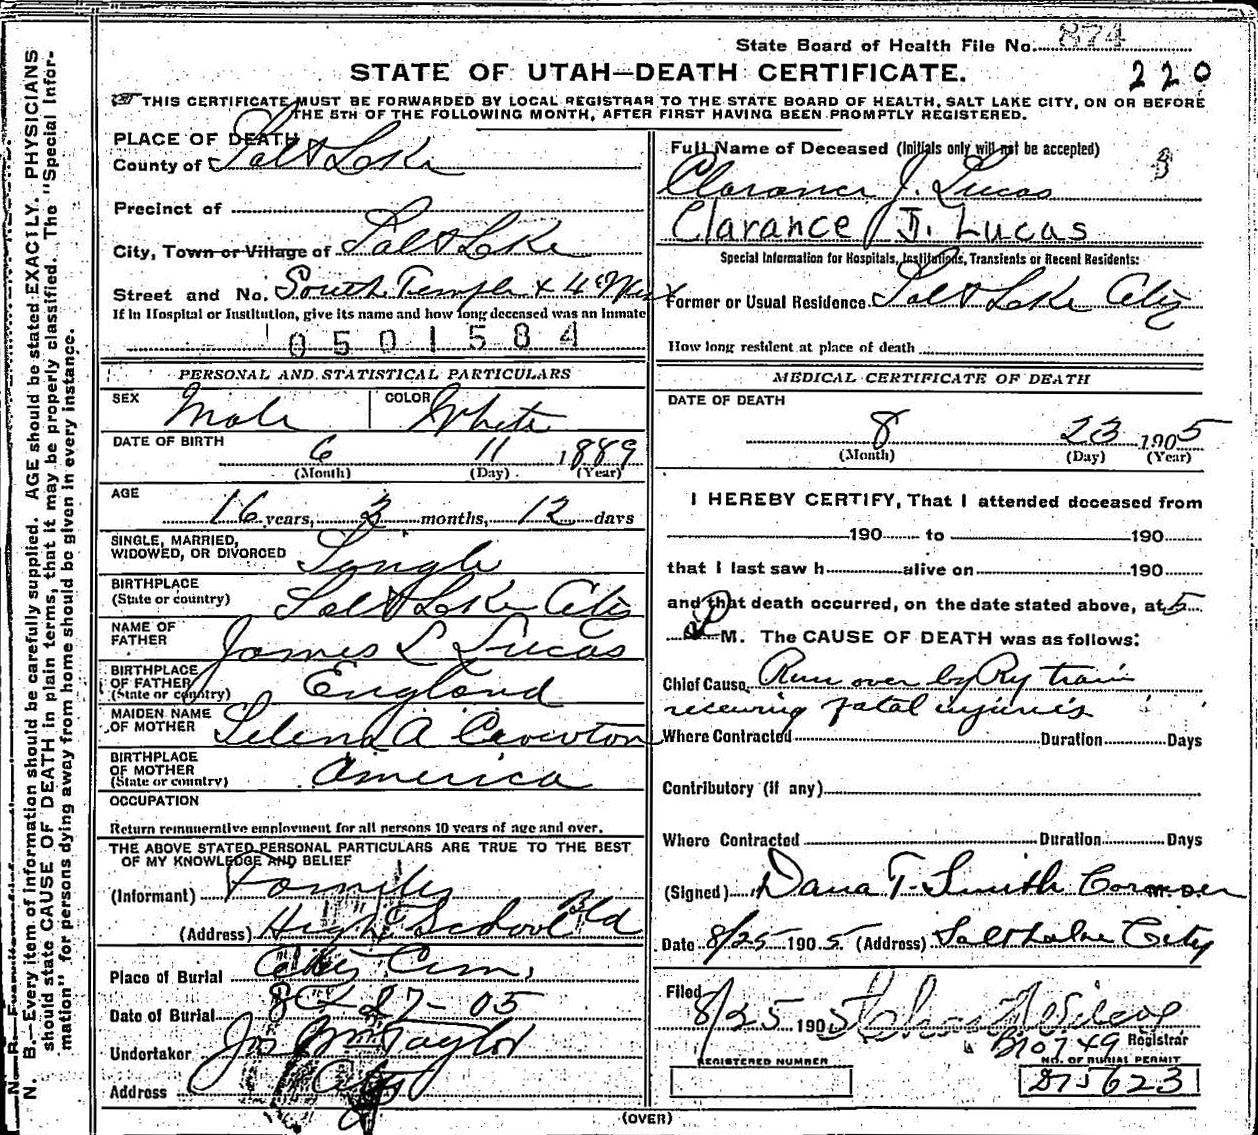 State Board of Health File No. 874
STATE OF UTAH—DEATH CERTIFICATE.
220
THIS CERTIFICATE MUST BE FORWARDED BY LOCAL REGISTRAR TO THE STATE BOARD OF HEALTH, SALT LAKE CITY, ON OR BEFORE
THE 5TH OF THE FOLLOWING MONTH, AFTER FIRST HAVING BEEN PROMPTLY REGISTERED.
N. B.—Every item of information should be carefully supplied. AGE should be stated EXACTLY. PHYSICIANS
should state CAUSE OF DEATH in plain terms, that it may be properly classified. The "Special Infor-
mation" for persons dying away from home should be given in every instance.
PLACE OF DEATH
County of Salt Lake
Precinct of
City, Town or Village of Salt Lake
Street and No. South Temple & 4 West
If in Hospital or Institution, give its name and how long deceased was an inmate
0501584
PERSONAL AND STATISTICAL PARTICULARS
SEX Male COLOR White
DATE OF BIRTH
6 11 1889
(Month) (Day) (Year)
AGE
16 years, 2 months, 12 days
SINGLE, MARRIED,
WIDOWED, OR DIVORCED Single
BIRTHPLACE
(State or country) Salt Lake City
NAME OF
FATHER James L Lucas
BIRTHPLACE
OF FATHER
(State or country) England
MAIDEN NAME
OF MOTHER Selena A
BIRTHPLACE
OF MOTHER
(State or country) America
OCCUPATION
Return remunerative employment for all persons 10 years of age and over.
THE ABOVE STATED PERSONAL PARTICULARS ARE TRUE TO THE BEST
OF MY KNOWLEDGE AND BELIEF
(Informant) Family
(Address) High School Bld
Place of Burial City Cem.
Date of Burial 8 27-05
Undertaker Jos Wm Taylor
Address City
Full Name of Deceased (Initials only will not be accepted)
Clarance J. Lucas
Clarance J. Lucas
Special Information for Hospitals, Institutions, Transients or Recent Residents:
Former or Usual Residence Salt Lake City
How long resident at place of death
MEDICAL CERTIFICATE OF DEATH
DATE OF DEATH
8 23 1905
(Month) (Day) (Year)
I HEREBY CERTIFY, That I attended deceased from
190 to 190
that I last saw h alive on 190
and that death occurred, on the date stated above, at 5
P M. The CAUSE OF DEATH was as follows:
Chief Cause Run over by Ry train
receiving fatal injuries
Where Contracted Duration Days
Contributory (if any)
Where Contracted Duration Days
(Signed) Dana T. Smith Coroner
Date 8/25 1905 (Address) Salt Lake City
Filed
8/25 1905
Registrar
B10749
REGISTERED NUMBER NO. OF BURIAL PERMIT
D75623
(OVER)